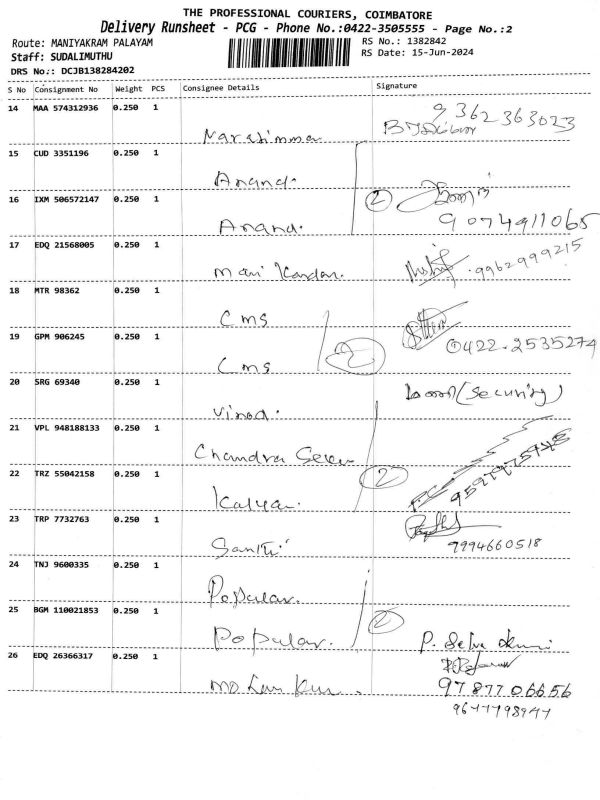 THE PROFESSIONAL COURIERS, COIMBATORE
Delivery Runsheet - PCG - Phone No.:0422-3505555 - Page No.:2
Route: MANIYAKRAM PALAYAM
RS No.: 1382842
Staff: SUDALIMUTHU
RS Date: 15-Jun-2024
DRS No.: DCJB138284202
S No Consignment No Weight PCS Consignee Details Signature
14 MAA 574312936 0.250 1
9362363023
Narasimma
15 CUD 3351196 0.250 1
Anand.
16 IXM 506572147 0.250 1
2
Anand.
9074911065
17 EDQ 21568005 0.250 1
Mani Kandan.
9962999215
18 MTR 98362 0.250 1
Cms
19 GPM 906245 0.250 1
0422-2535274
2
Cms
20 SRG 69340 0.250 1
(Security)
Vinod.
21 VPL 948188133 0.250 1
Chandra
22 TRZ 55042158 0.250 1
2
Kalyan.
23 TRP 7732763 0.250 1
Santhi
9994660518
24 TNJ 9600335 0.250 1
Popular.
25 BGM 110021853 0.250 1
2
Popular.
P. Selva
26 EDQ 26366317 0.250 1
9787706656